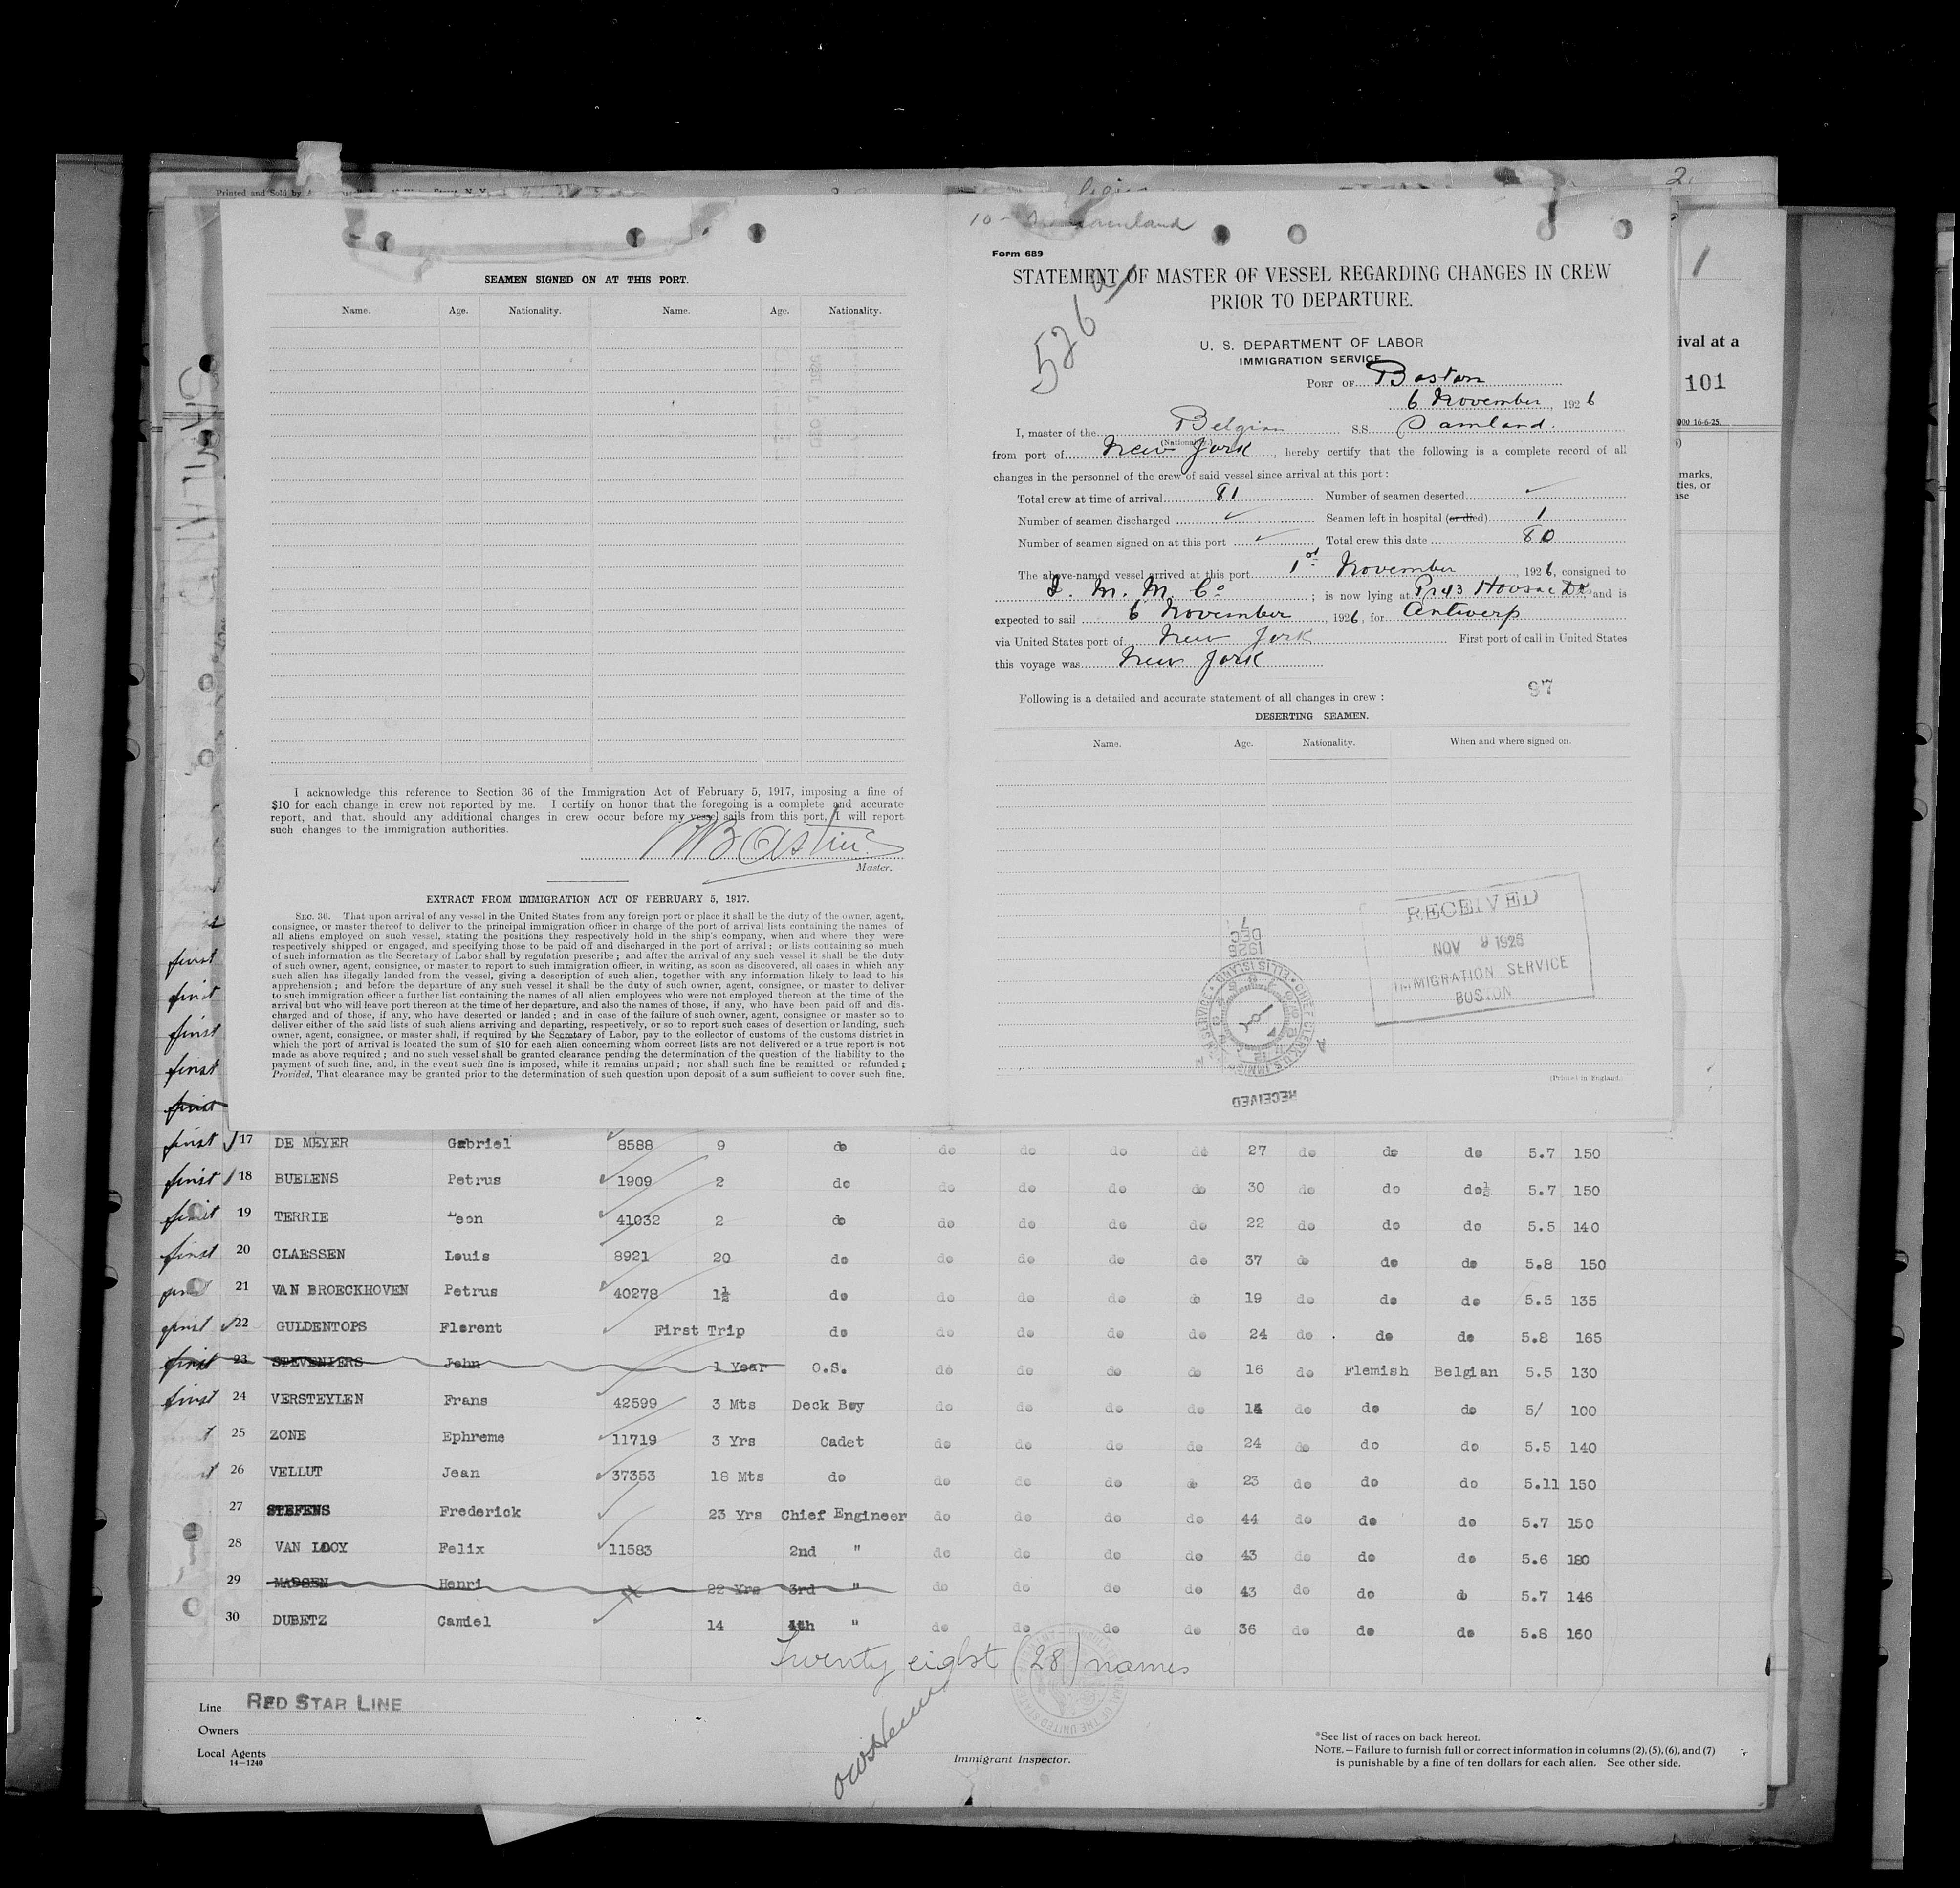 Printed and Sold by
2
SEAMEN SIGNED ON AT THIS PORT.
Name. Age. Nationality. Name. Age. Nationality.
I acknowledge this reference to Section 36 of the Immigration Act of February 5, 1917, imposing a fine of
$10 for each change in crew not reported by me. I certify on honor that the foregoing is a complete and accurate
report, and that should any additional changes in crew occur before my vessel sails from this port, I will report
such changes to the immigration authorities.
Master.
EXTRACT FROM IMMIGRATION ACT OF FEBRUARY 5, 1917.
SEC. 36. That upon arrival of any vessel in the United States from any foreign port or place it shall be the duty of the owner, agent,
consignee, or master thereof to deliver to the principal immigration officer in charge of the port of arrival lists containing the names of
all aliens employed on such vessel, stating the positions they respectively hold in the ship's company, when and where they were
respectively shipped or engaged, and specifying those to be paid off and discharged in the port of arrival; or lists containing so much
of such information as the Secretary of Labor shall by regulation prescribe; and after the arrival of any such vessel it shall be the duty
of such owner, agent, consignee, or master to report to such immigration officer, in writing, as soon as discovered, all cases in which any
such alien has illegally landed from the vessel, giving a description of such alien, together with any information likely to lead to his
apprehension; and before the departure of any such vessel it shall be the duty of such owner, agent, consignee, or master to deliver
to such immigration officer a further list containing the names of all alien employees who were not employed thereon at the time of the
arrival but who will leave port thereon at the time of her departure, and also the names of those, if any, who have been paid off and dis-
charged and of those, if any, who have deserted or landed; and in case of the failure of such owner, agent, consignee or master so to
deliver either of the said lists of such aliens arriving and departing, respectively, or so to report such cases of desertion or landing, such
owner, agent, consignee, or master shall, if required by the Secretary of Labor, pay to the collector of customs of the customs district in
which the port of arrival is located the sum of $10 for each alien concerning whom correct lists are not delivered or a true report is not
made as above required; and no such vessel shall be granted clearance pending the determination of the question of the liability to the
payment of such fine, and, in the event such fine is imposed, while it remains unpaid; nor shall such fine be remitted or refunded;
Provided, That clearance may be granted prior to the determination of such question upon deposit of a sum sufficient to cover such fine.
Form 689
STATEMENT OF MASTER OF VESSEL REGARDING CHANGES IN CREW
PRIOR TO DEPARTURE.
526
U. S. DEPARTMENT OF LABOR
IMMIGRATION SERVICE
PORT OF Boston
6 November, 1926
I, master of the Belgian S.S. Samland.
(Nationality.)
from port of New York, hereby certify that the following is a complete record of all
changes in the personnel of the crew of said vessel since arrival at this port:
Total crew at time of arrival 81 Number of seamen deserted
Number of seamen discharged Seamen left in hospital (or died) 1
Number of seamen signed on at this port Total crew this date 80
The above-named vessel arrived at this port 1st November, 1926, consigned to
I. M. M. Co; is now lying at Pr 43 Hoosac Dk, and is
expected to sail 6 November, 1926, for Antwerp
via United States port of New York First port of call in United States
this voyage was New York
Following is a detailed and accurate statement of all changes in crew:
97
DESERTING SEAMEN.
Name. Age. Nationality. When and where signed on.
RECEIVED
NOV 9 1926
IMMIGRATION SERVICE
BOSTON
1926
DEC 7
RECEIVED
(Printed in England.
1
ival at a
101
000 16-6-25.
marks,
ties, or
ase
first
first
first
first
first
first 17 DE MEYER Gabriel 8588 9 do do do do do 27 do do do 5.7 150
first 18 BUELENS Petrus 1909 2 do do do do do 30 do do do½ 5.7 150
first 19 TERRIE Leon 41032 2 do do do do do 22 do do do 5.5 140
first 20 CLAESSEN Louis 8921 20 do do do do do 37 do do do 5.8 150
21 VAN BROECKHOVEN Petrus 40278 1½ do do do do do 19 do do do 5.5 135
first 22 GULDENTOPS Florent First Trip do do do do do 24 do do do 5.8 165
first 23 STEVENIERS John 1 Year O.S. do do do do 16 do Flemish Belgian 5.5 130
first 24 VERSTEYLEN Frans 42599 3 Mts Deck Boy do do do do 14 do do do 5/ 100
25 ZONE Ephreme 11719 3 Yrs Cadet do do do do 24 do do do 5.5 140
26 VELLUT Jean 37353 18 Mts do do do do do 23 do do do 5.11 150
27 STEFENS Frederick 23 Yrs Chief Engineer do do do do 44 do do do 5.7 150
28 VAN LOOY Felix 11583 2nd " do do do do 43 do do do 5.6 180
29 MADSEN Henri 22 Yrs 3rd " do do do do 43 do do do 5.7 146
30 DUBETZ Camiel 14 4th " do do do do 36 do do do 5.8 160
Twenty eight (28) names
Line RED STAR LINE
Owners
Local Agents
14—1240
Immigrant Inspector.
*See list of races on back hereof.
NOTE.—Failure to furnish full or correct information in columns (2), (5), (6), and (7)
is punishable by a fine of ten dollars for each alien. See other side.